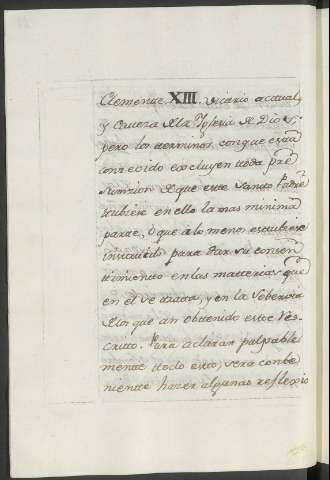 Clemente XIII. vicario actual,
y Caveza de la Yglesia de Dios;
pero los terminos, con que está
concevido excluyen toda pre
sumzion de que este Santo Padre
tubiese en ello la mas minima
parte, ó que á lo menos estubiese
instruido para dar su consen
timiento en las matterias que
en el se tratta, y en la
de los que an obtenido este Res
critto. Para aclarar palpable
mente ttodo estto, sera combe
niente hazer algunas reflexio